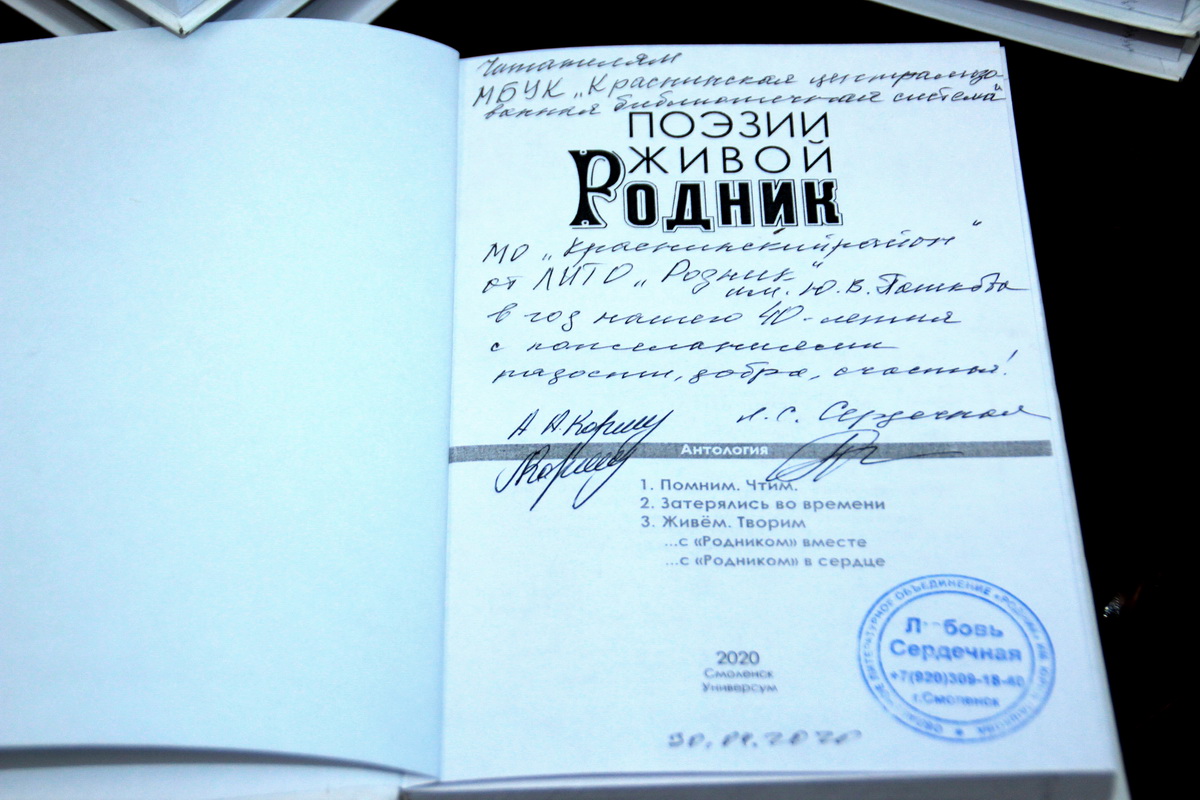 Читателям
МБУК „Краснинская централизо-
ванная библиотечная система"
ПОЭЗИИ
ЖИВОЙ
РОДНИК
МО „Краснинский район"
от ЛИТО „Родник"
им. Ю. В. Пашкова
в год нашего 40-летия
с пожеланиями
радости, добра, счастья!
Л. С. Сердечная
Антология
1. Помним. Чтим.
2. Затерялись во времени
3. Живём. Творим
...с «Родником» вместе
...с «Родником» в сердце
ЛИТЕРАТУРНОЕ ОБЪЕДИНЕНИЕ «РОДНИК»
Л бовь
Сердечная
+7(920)309-18-40
г.Смоленск
2020
Смоленск
Универсум